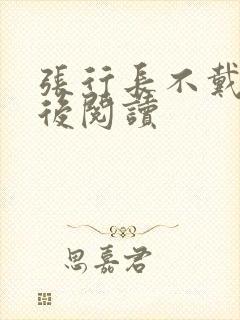 張行長不戴
後閱讀
思嘉君